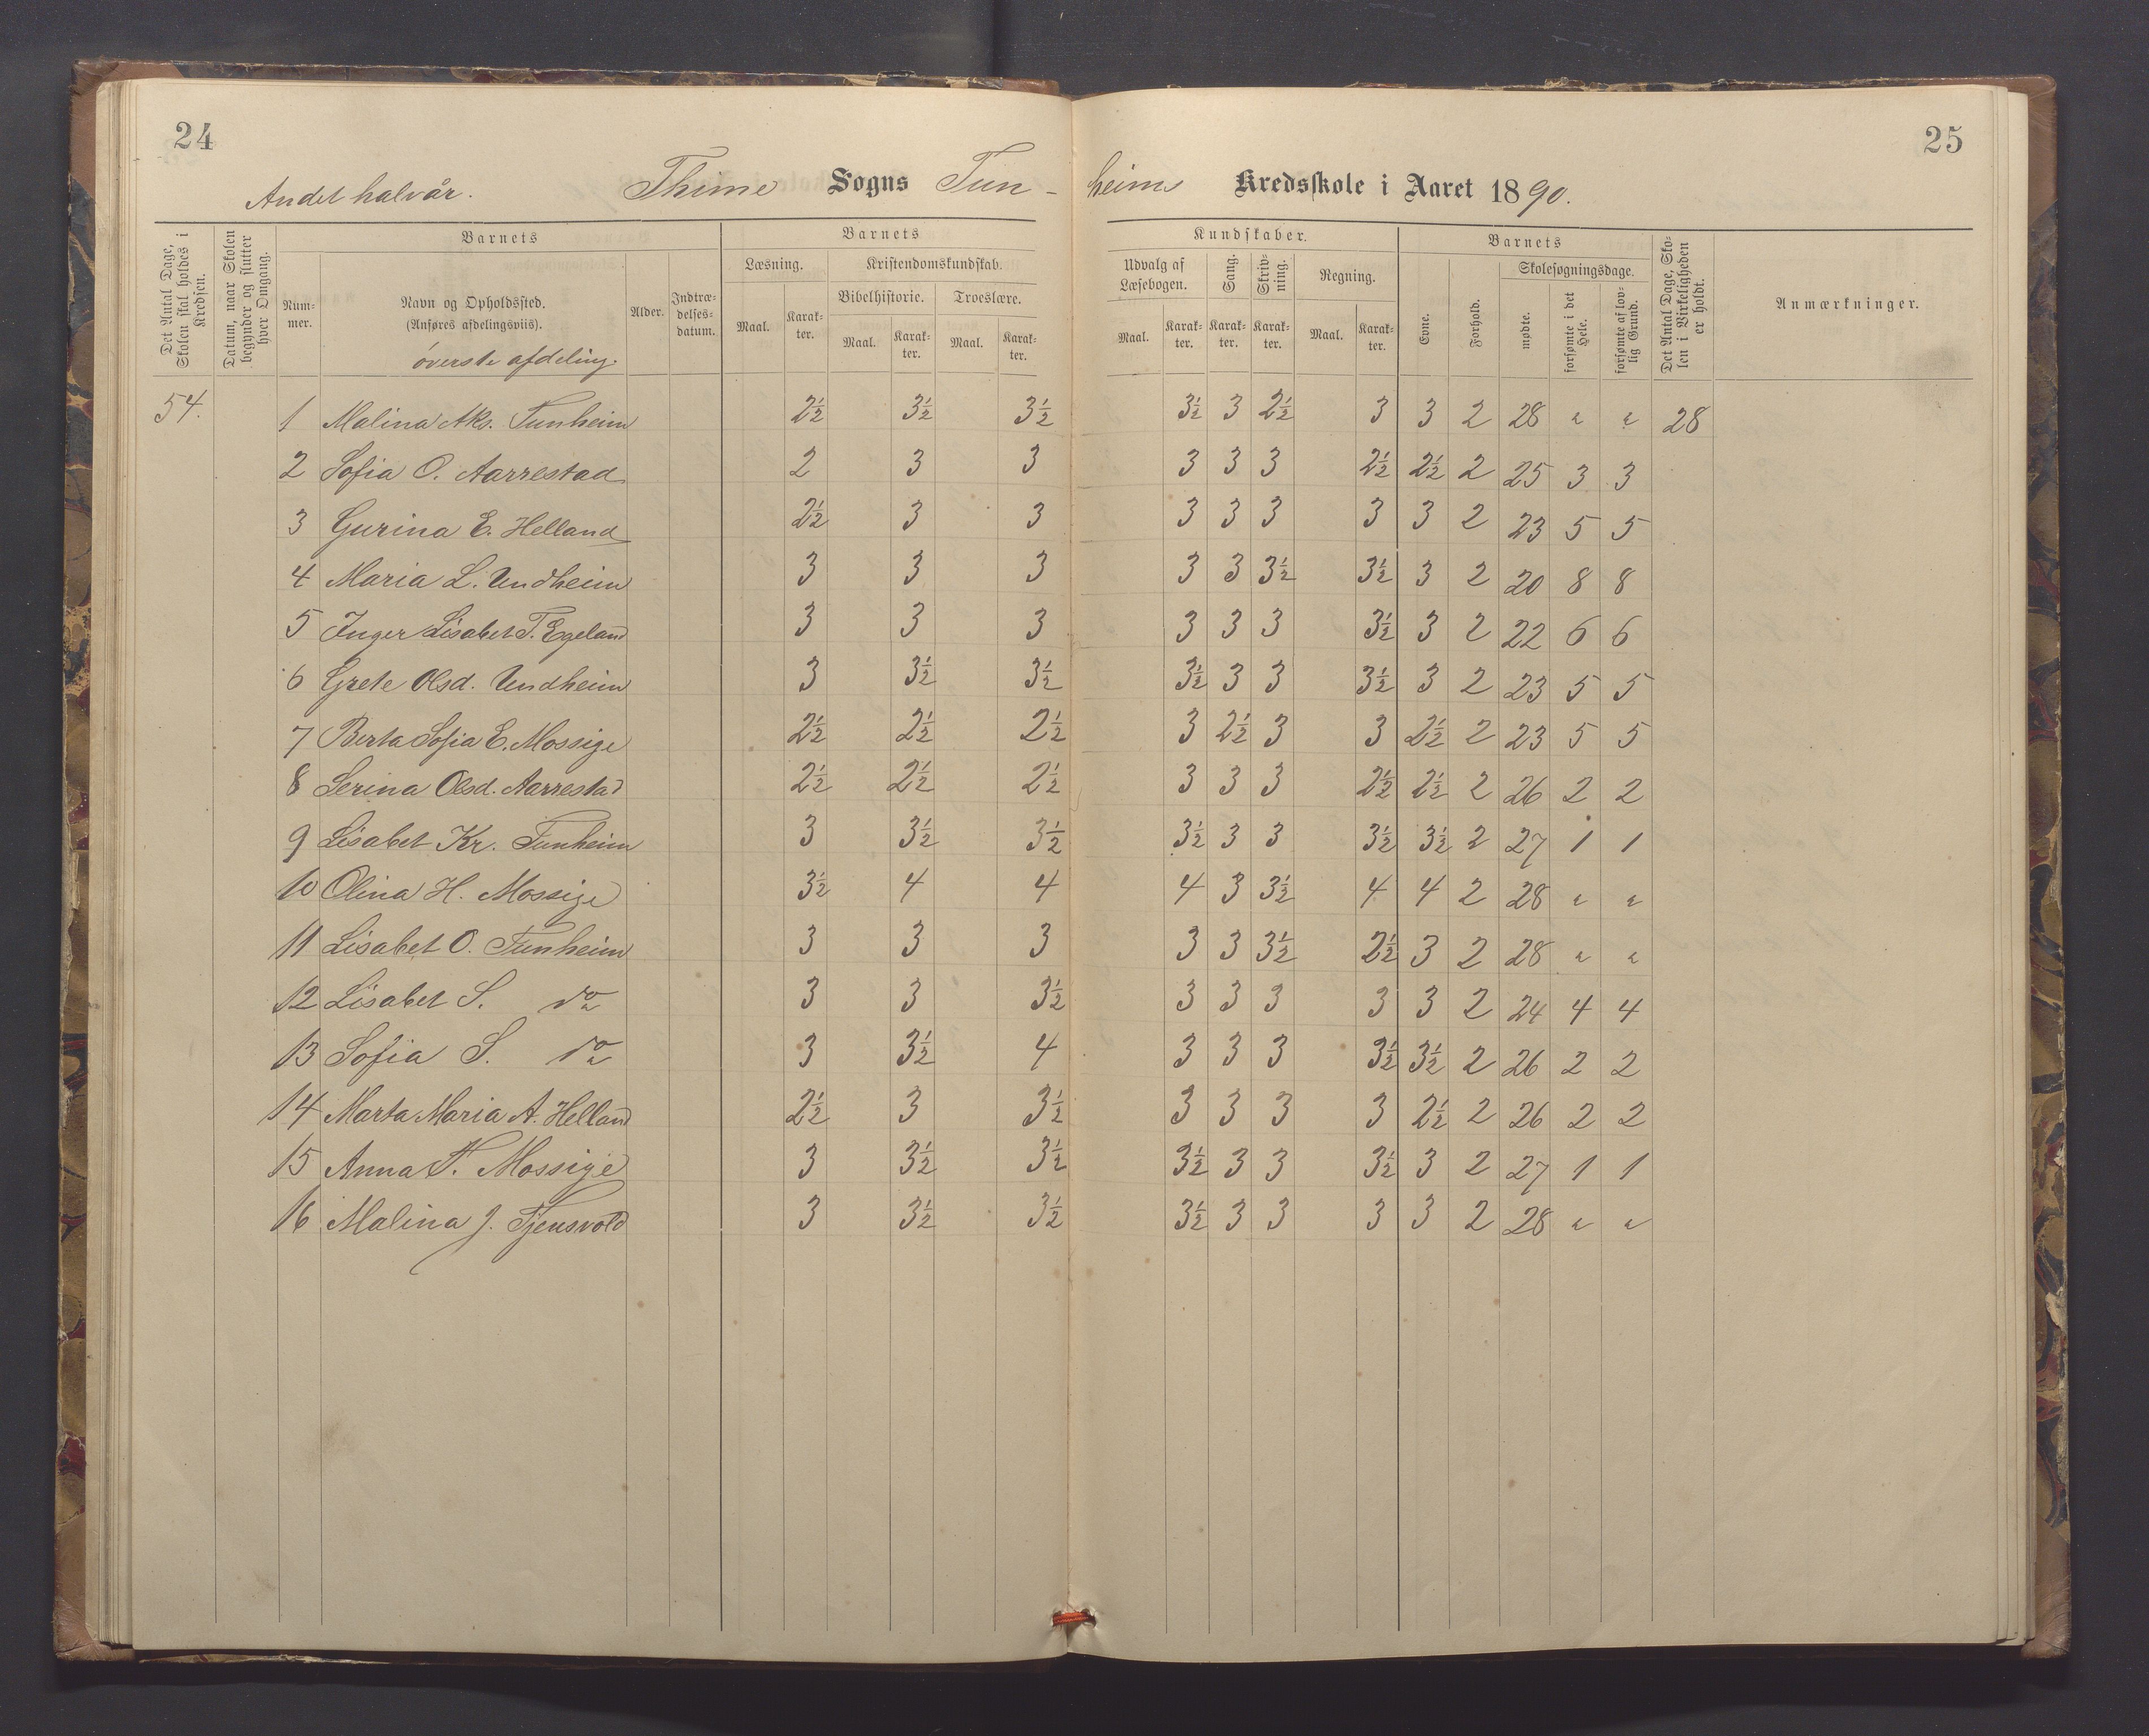 24
25
Andet halvår. Thime Sogns Tun-heims Kredsskole i Aaret 1890.
Det Antal Dage, Skolen skal holdes i Kredsen.
Datum, naar Skolen begynder og slutter hver Omgang.
Barnets
Num-mer.
Navn og Opholdssted.
(Anføres afdelingsviis).
øverste afdeling.
Alder.
Indtræ-delses-datum.
Barnets
Læsning.
Kristendomskundskab.
Bibelhistorie.
Troeslære.
Maal. Karak-ter. Maal. Karak-ter. Maal. Karak-ter.
Kundskaber.
Udvalg af Læsebogen.
Sang.
Skriv-ning.
Regning.
Maal. Karak-ter. Karak-ter. Karak-ter. Maal. Karak-ter.
Barnets
Evne.
Forhold.
Skolesøgningsdage.
mødte.
forsømte i det Hele.
forsømte af lov-lig Grund.
Det Antal Dage, Sko-len i Virkeligheden er holdt.
Anmærkninger.
54. 1 Malina Aks. Tunheim 2½ 3½ 3½ 3½ 3 2½ 3 3 2 28 " " 28
2 Sofia O. Aarrestad 2 3 3 3 3 3 2½ 2½ 2 25 3 3
3 Gurina E. Helland 2½ 3 3 3 3 3 3 3 2 23 5 5
4 Maria L. Undheim 3 3 3 3 3 3½ 3½ 3 2 20 8 8
5 Inger Lisabet T. Egeland 3 3 3 3 3 3 3½ 3 2 22 6 6
6 Grete Olsd. Undheim 3 3½ 3½ 3½ 3 3 3½ 3 2 23 5 5
7 Berta Sofia E. Mossige 2½ 2½ 2½ 3 2½ 3 3 2½ 2 23 5 5
8 Serina Olsd. Aarrestad 2½ 2½ 2½ 3 3 3 2½ 2½ 2 26 2 2
9 Lisabet Kr. Tunheim 3 3½ 3½ 3½ 3 3 3½ 3½ 2 27 1 1
10 Olina H. Mossige 3½ 4 4 4 3 3½ 4 4 2 28 " "
11 Lisabet O. Tunheim 3 3 3 3 3 3½ 2½ 3 2 28 " "
12 Lisabet S. do 3 3 3½ 3 3 3 3 3 2 24 4 4
13 Sofia S. do 3 3½ 4 3 3 3 3½ 3½ 2 26 2 2
14 Marta Maria A. Helland 2½ 3 3½ 3 3 3 3 2½ 2 26 2 2
15 Anna T. Mossige 3 3½ 3½ 3½ 3 3 3½ 3 2 27 1 1
16 Malina J. Tjensvold 3 3½ 3½ 3½ 3 3 3 3 2 28 " "